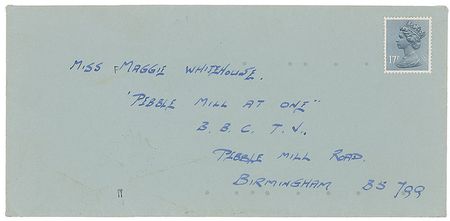 17P
MISS MAGGIE WHITEHOUSE.
"PEBBLE MILL AT ONE"
B. B. C. T. V.
PEBBLE MILL ROAD.
BIRMINGHAM B5 7QQ